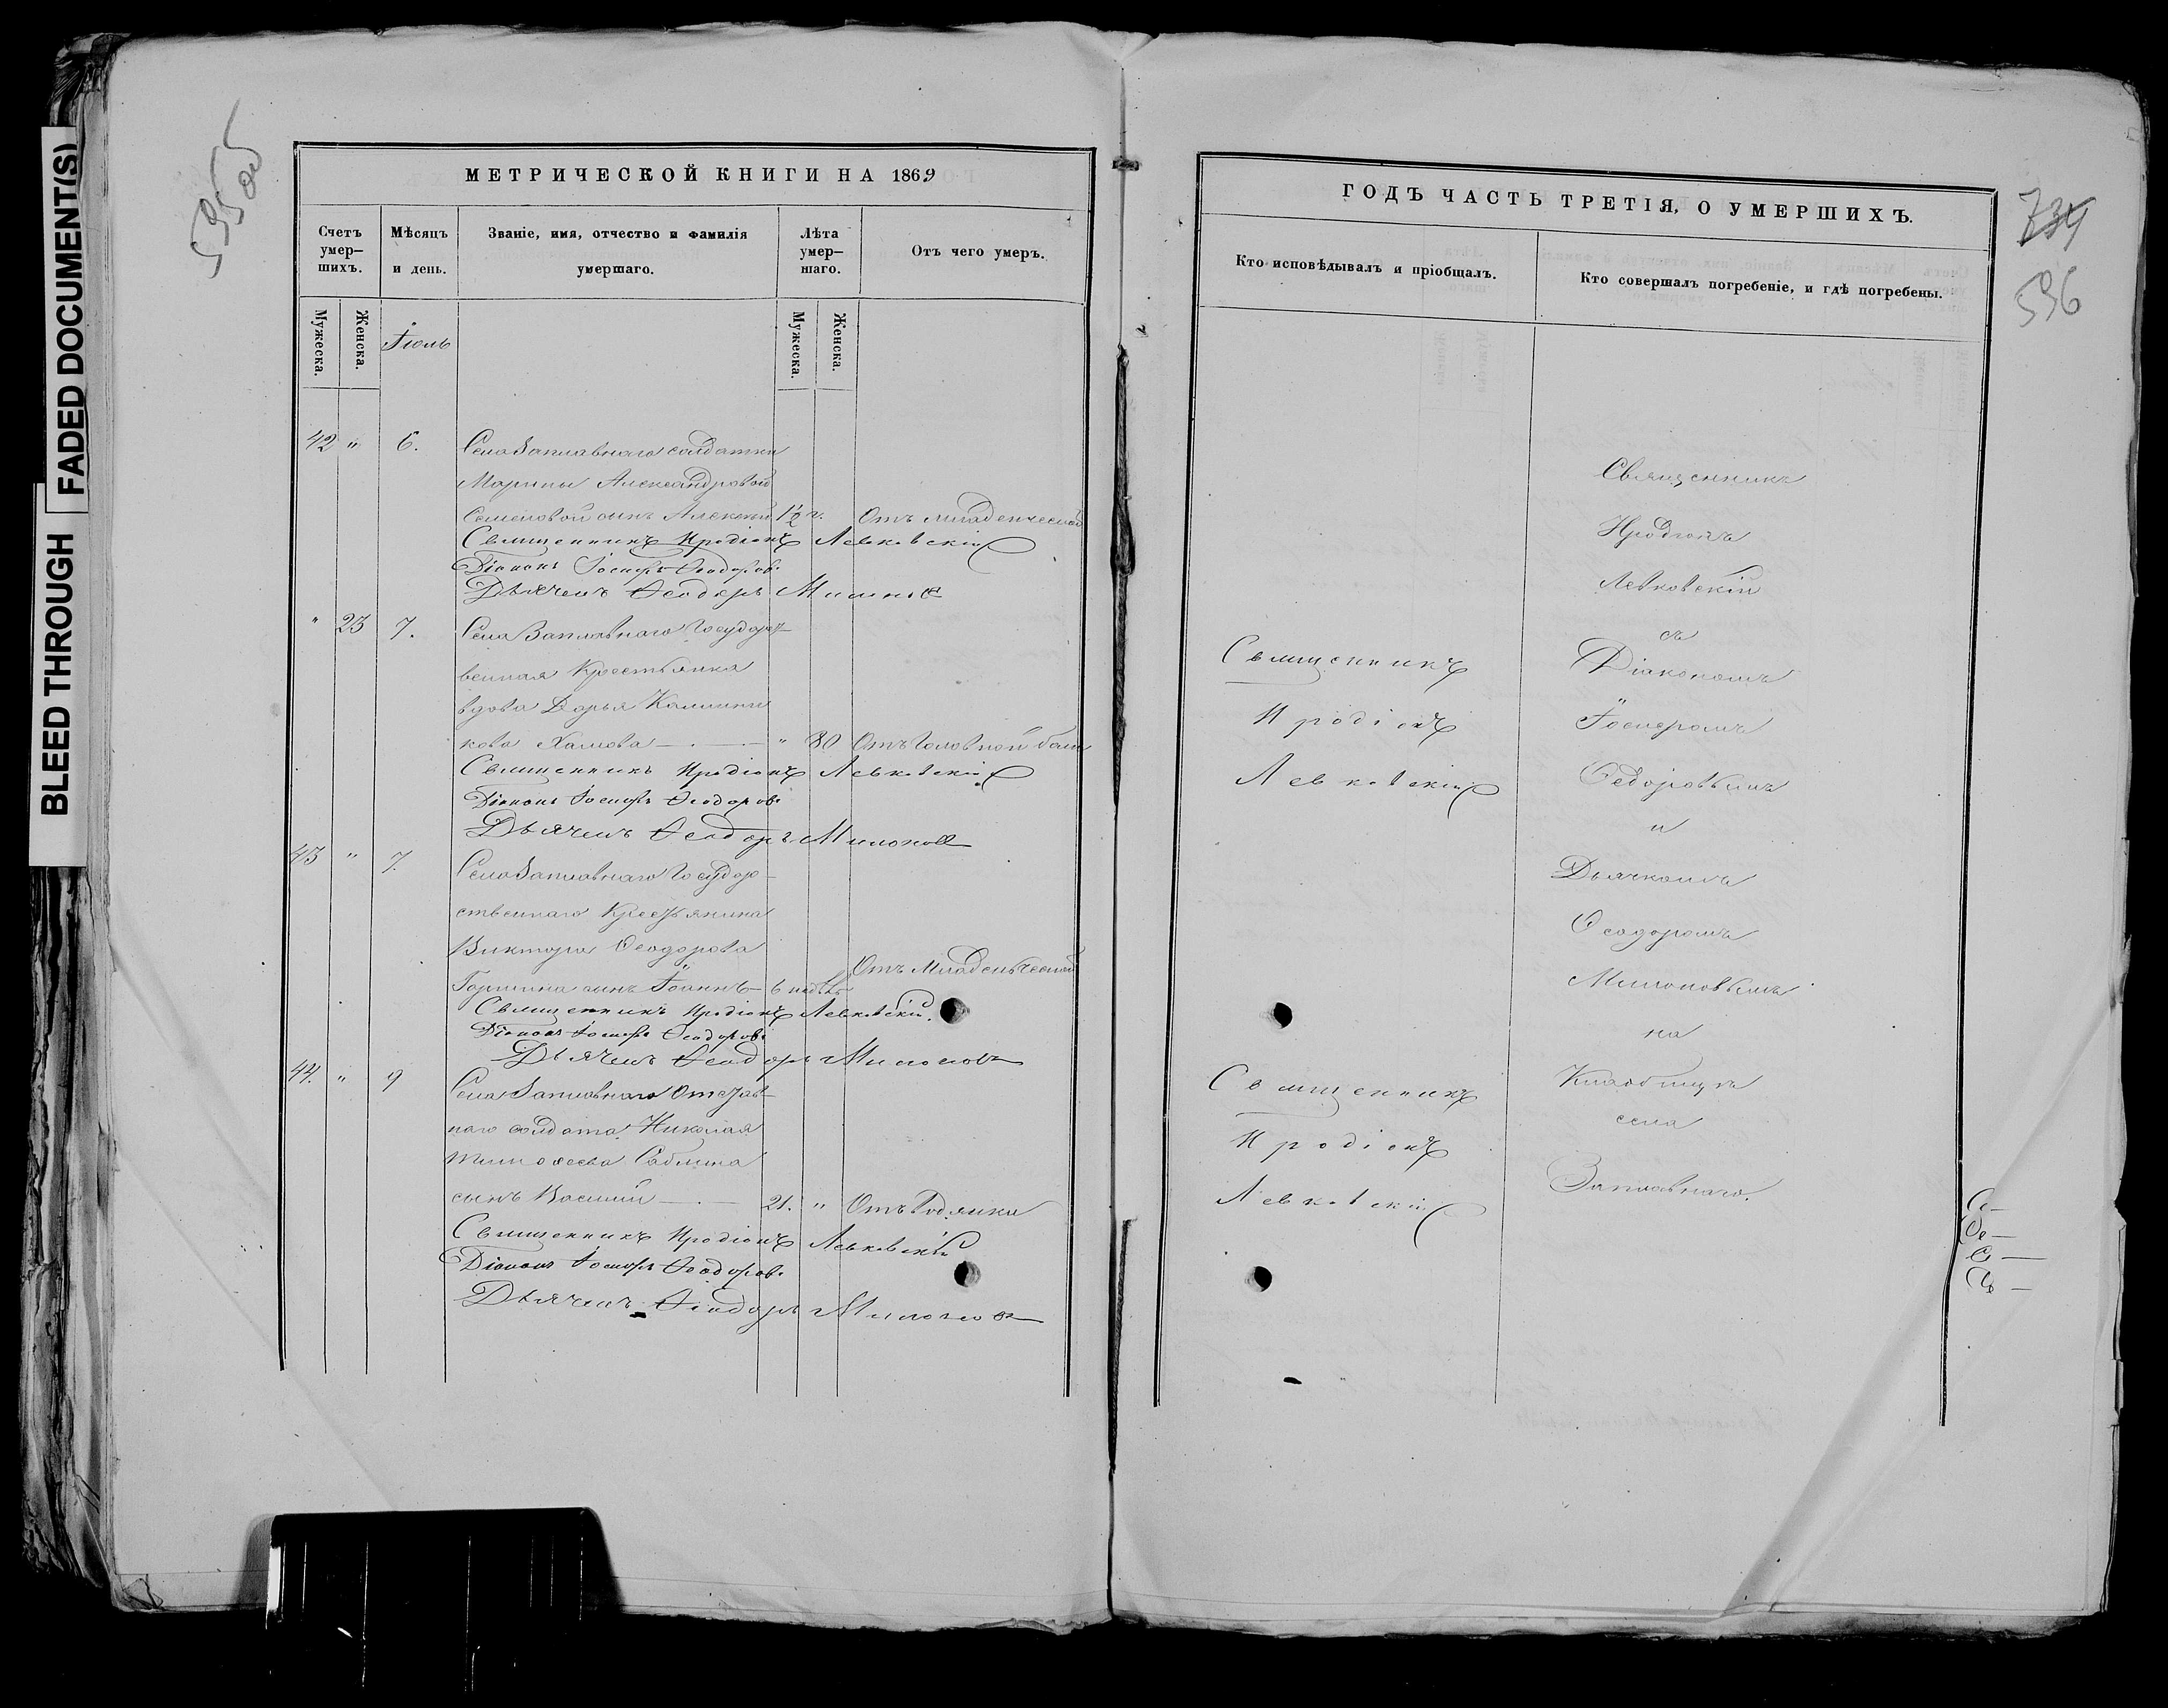 BLEED THROUGH
FADED DOCUMENT(S)
595об
МЕТРИЧЕСКОЙ КНИГИ НА 1869
Счетъ умер-
шихъ.
Мѣсяцъ
и день.
Званіе, имя, отчество и фамилія
умершаго.
Лѣта
умер-
шаго.
Отъ чего умеръ.
Мужеска.
Женска.
Іюль
Мужеска.
Женска.
42 " 6. Села Заплавнаго солдатки
Марины Александровой
Семеновой сынъ Алексей 1½ г. Отъ младенческой
Священникъ Иродіонъ Левковскій
Діаконъ Іосифъ Ѳеодоровъ
Дьячекъ Ѳеодоръ Милоновъ
" 23 7. Села Заплавнаго Государст-
венная Крестьянка
вдова Дарья Калинни-
кова Хамова " 80 Отъ Головной боли
Священникъ Иродіонъ Левковскій
Діаконъ Іосифъ Ѳеодоровъ
Дьячекъ Ѳеодоръ Милоновъ
43 " 7. Села Заплавнаго Государ-
ственнаго Крестьянина
Виктора Ѳеодорова
Горшина сынъ Іоаннъ 6 недѣль Отъ Младенческой
Священникъ Иродіонъ Левковскій.
Діаконъ Іосифъ Ѳеодоровъ
Дьячекъ Ѳеодоръ Милоновъ
44. " 9 Села Заплавнаго Отстав-
наго солдата Николая
Тимоѳеева
сынъ Василий 21. " Отъ Водянки
Священникъ Иродіонъ Левковскій
Діаконъ Іосифъ Ѳеодоровъ
Дьячекъ Ѳеодоръ Милоновъ
734
596
ГОДЪ ЧАСТЬ ТРЕТІЯ, О УМЕРШИХЪ.
Кто исповѣдывалъ и пріобщалъ.
Кто совершалъ погребеніе, и гдѣ погребены.
Священникъ
Иродіонъ
Левковскій
Священникъ
Иродіонъ
Левковскій
Священникъ
Иродіонъ
Левковскій
съ
Діакономъ
Іосифомъ
Ѳедоровымъ
и
Дьячкомъ
Ѳеодоромъ
Милоновымъ
на
Кладбище
села
Заплавнаго.